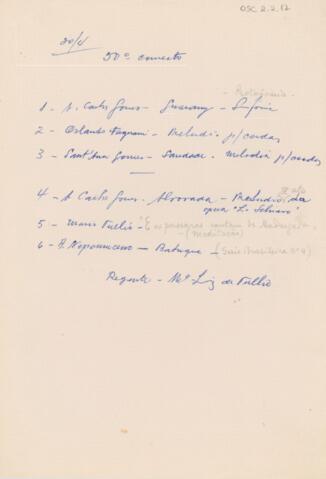 OSC 2.2.12
20/4
50º concerto
1 - A. Carlos Gomes - Guarany - Sinfonia
2 - Orlando Fagnani - Preludio p/cordas
3 - Sant'Ana Gomes - Saudade - melodia p/cordas
4 - A Carlos Gomes - Alvorada - Preludio da
opera "Lo Schiavo"
5 - Mario Tullio - "E os passaros cantam de Madrugada"
(meditação)
6 - A. Nepomuceno - Batuque - (Serie Brasileira nº 4)
Regente - Mº Luiz de Tullio